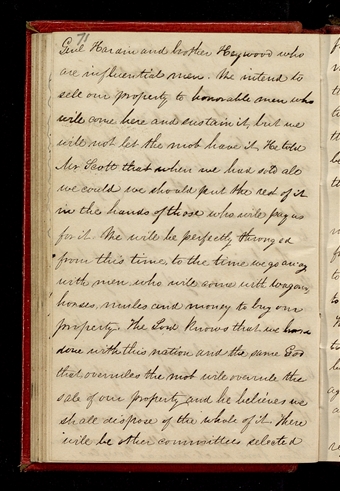 71
Genl Hardin and brother Heywood who
are influential men. We intend to
sell our property to honorable men who
will come here and sustain it, but we
will not let the mob have it. He told
Mr Scott that when we had sold all
we could we should put the rest of it
in the hands of those who will pay us
for it. We will be perfectly thronged
from this time to the time we go away
with men who will come with wagons
horses, mules and money to buy our
property. The Lord knows that we have
done with this nation and the same God
that overrules the mob will overrule the
sale of our property and he believes we
shall dispose of the whole of it. There
will be other committees selected